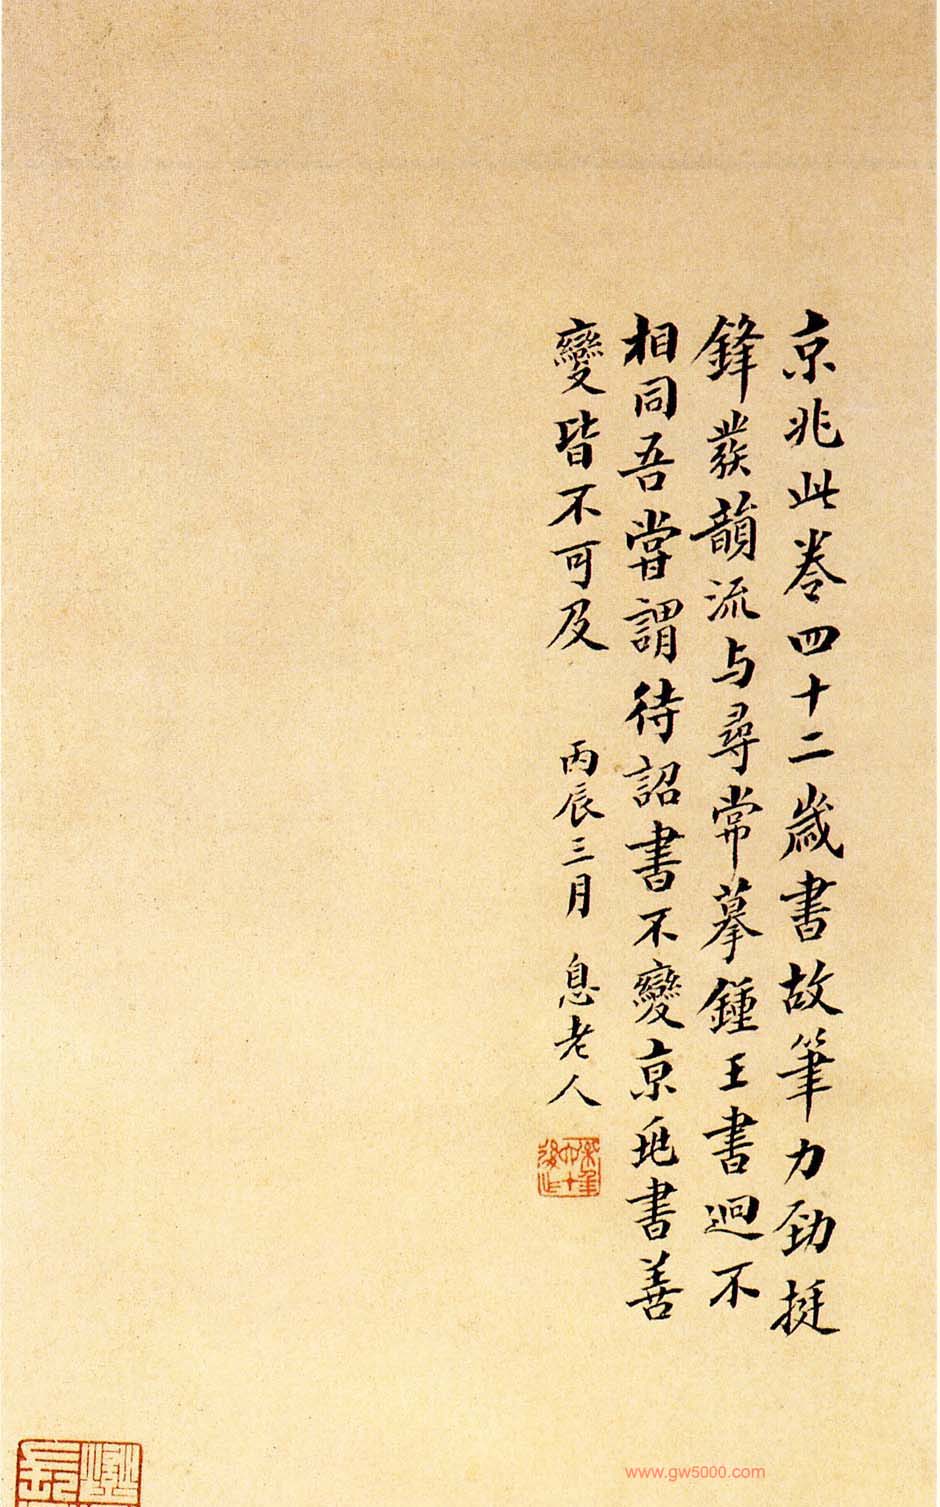 京兆此卷四十二歲書故筆力勁挺
鋒發韻流与尋常摹鍾王書迥不
相同吾嘗謂待詔書不變京兆書善
變皆不可及
丙辰三月 息老人
www.gw5000.com